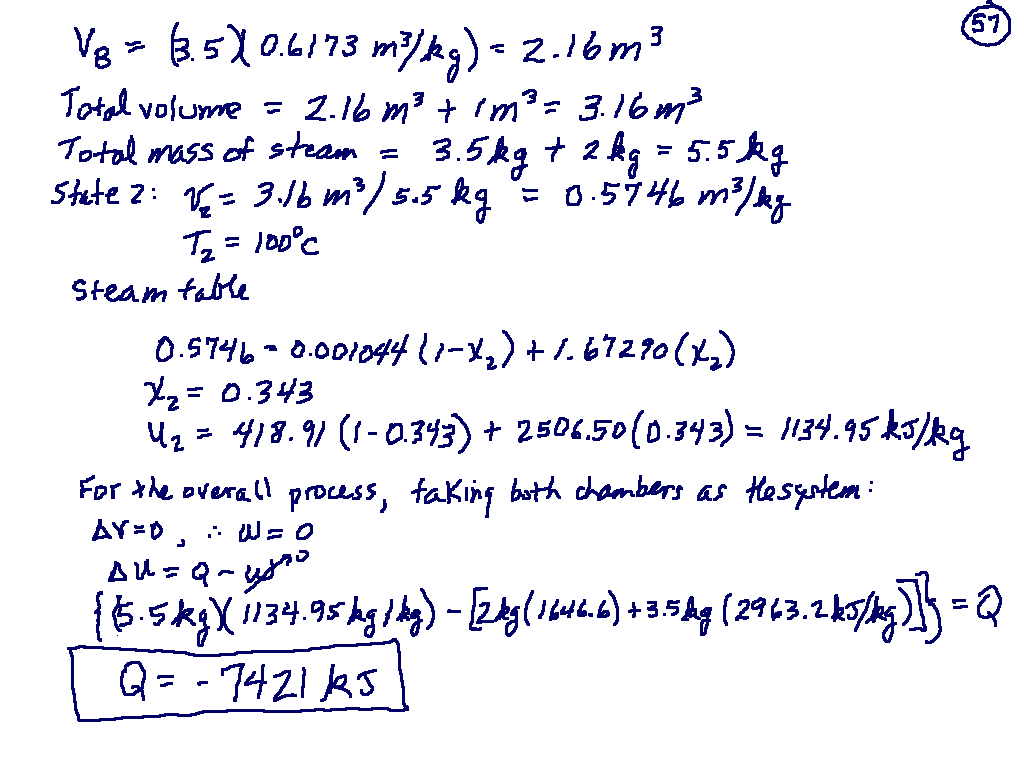 57
V_B = (3.5)(0.6173 m³/kg) = 2.16 m³
Total volume = 2.16 m³ + 1 m³ = 3.16 m³
Total mass of steam = 3.5 kg + 2 kg = 5.5 kg
State 2: v₂ = 3.16 m³/5.5 kg = 0.5746 m³/kg
T₂ = 100°C
Steam table
0.5746 = 0.001044 (1-x₂) + 1.67290 (x₂)
x₂ = 0.343
u₂ = 418.91 (1-0.343) + 2506.50 (0.343) = 1134.95 kJ/kg
For the overall process, taking both chambers as the system:
ΔV=0, ∴ W=0
ΔU = Q - W→0
{(5.5 kg)(1134.95 kg/kg) - [2kg(1646.6) + 3.5kg (2963.2 kJ/kg)]} = Q
Q = -7421 kJ